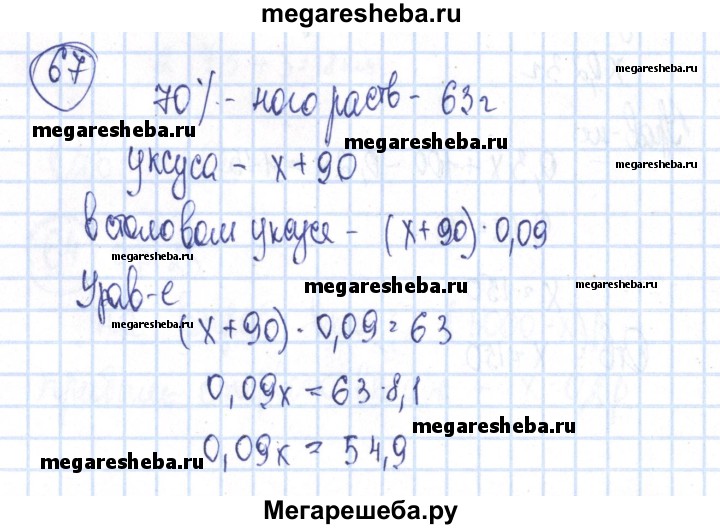 megaresheba.ru
67
70%-ного раств - 63г
megaresheba.ru
megaresheba.ru
megaresheba.ru
megaresheba.ru
уксуса - х+90
в столовом уксусе - (х+90)·0,09
megaresheba.ru
megaresheba.ru
Урав-е
megaresheba.ru
megaresheba.ru
(х+90)·0,09=63
0,09х=63·8,1
megaresheba.ru
0,09х=54,9
megaresheba.ru
Мегарешеба.ру